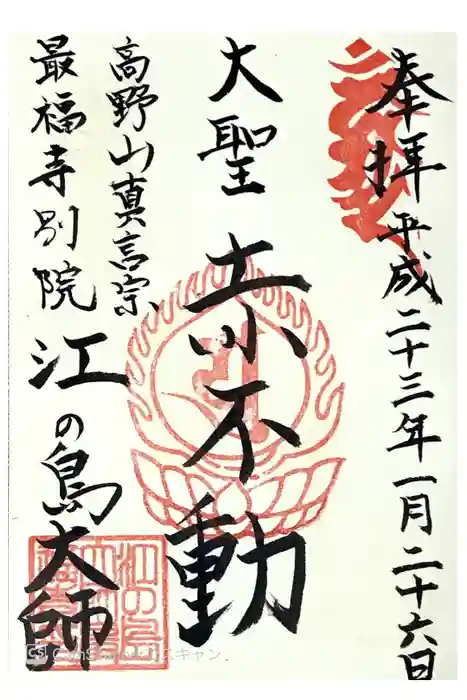 奉拝 平成二十三年一月二十六日
大聖 赤不動
高野山真言宗
最福寺別院 江の島大師